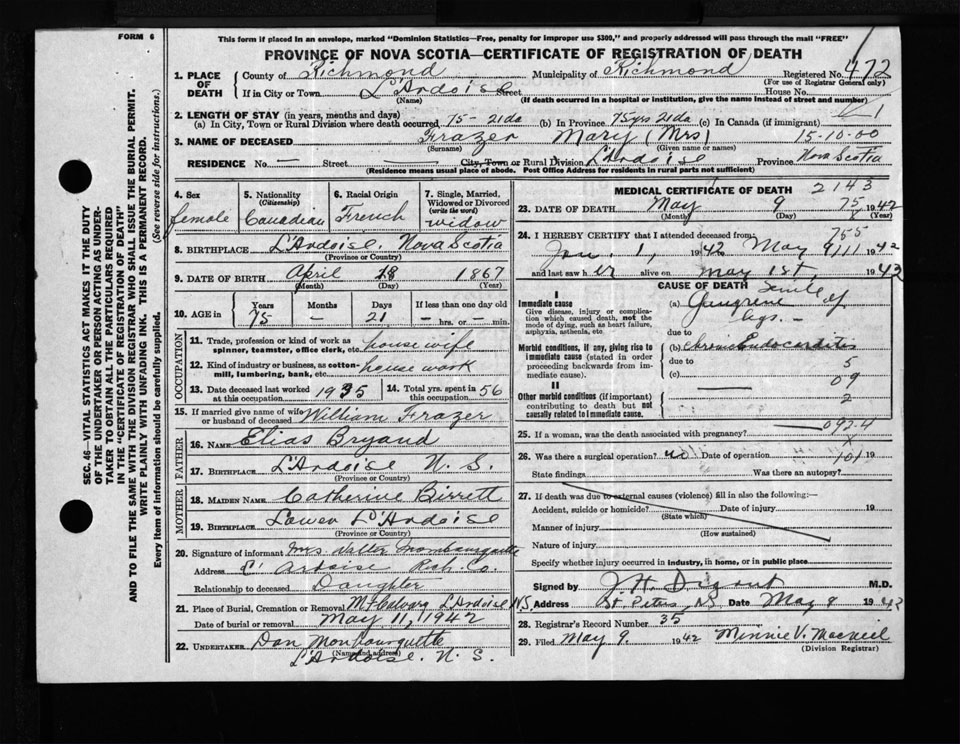 FORM 6
This form if placed in an envelope, marked "Dominion Statistics—Free, penalty for improper use $300," and properly addressed will pass through the mail "FREE"
PROVINCE OF NOVA SCOTIA—CERTIFICATE OF REGISTRATION OF DEATH
1. PLACE OF DEATH
County of Richmond Municipality of Richmond Registered No. 472
(For use of Registrar General only)
If in City or Town L'Ardoise Street House No.
(Name) (If death occurred in a hospital or institution, give the name instead of street and number)
2. LENGTH OF STAY (in years, months and days)
(a) In City, Town or Rural Division where death occurred 75 - 21da (b) In Province 75yrs 21da (c) In Canada (if immigrant)
3. NAME OF DECEASED Frazer Mary (Mrs) 15-10-00
(Surname) (Given name or names)
RESIDENCE No. — Street City, Town or Rural Division L'Ardoise Province Nova Scotia
(Residence means usual place of abode. Post Office Address for residents in rural parts not sufficient)
SEC. 46—VITAL STATISTICS ACT MAKES IT THE DUTY
OF THE UNDERTAKER OR PERSON ACTING AS UNDER-
TAKER TO OBTAIN ALL THE PARTICULARS REQUIRED
IN THE "CERTIFICATE OF REGISTRATION OF DEATH"
AND TO FILE THE SAME WITH THE DIVISION REGISTRAR WHO SHALL ISSUE THE BURIAL PERMIT.
WRITE PLAINLY WITH UNFADING INK. THIS IS A PERMANENT RECORD.
Every item of information should be carefully supplied. (See reverse side for instructions.)
4. Sex female
5. Nationality (Citizenship) Canadian
6. Racial Origin French
7. Single, Married, Widowed or Divorced (write the word) widow
8. BIRTHPLACE L'Ardoise. Nova Scotia
(Province or Country)
9. DATE OF BIRTH April 18 1867
(Month) (Day) (Year)
10. AGE in Years 75 Months — Days 21 If less than one day old — hrs. or — min.
OCCUPATION
11. Trade, profession or kind of work as spinner, teamster, office clerk, etc. house wife
12. Kind of industry or business, as cotton-mill, lumbering, bank, etc. house work
13. Date deceased last worked at this occupation 1935 14. Total yrs. spent in this occupation 56
15. If married give name of wife or husband of deceased William Frazer
FATHER
16. NAME Elias Bryand
17. BIRTHPLACE L'Ardoise N. S.
(Province or Country)
MOTHER
18. MAIDEN NAME Catherine Birrett
19. BIRTHPLACE Lower L'Ardoise
(Province or Country)
20. Signature of informant Mrs Walter Mombourquette
Address L' Ardoise Rich. Co.
Relationship to deceased Daughter
21. Place of Burial, Cremation or Removal Mt Calvary L'Ardoise N.S.
Date of burial or removal May 11, 1942
22. UNDERTAKER Dan Monbourquette
(Name and address)
L'Ardoise. N. S.
MEDICAL CERTIFICATE OF DEATH 2143
23. DATE OF DEATH May 9 75 1942
(Month) (Day) (Year)
24. I HEREBY CERTIFY that I attended deceased from: 755
Jan. 1, 1942 May 9/11 1942
and last saw her alive on May 1st, 1942
CAUSE OF DEATH
I
Immediate cause
Give disease, injury or complication which caused death, not the mode of dying, such as heart failure, asphyxia, asthenia, etc
(a) Senile Gangrene of legs. —
due to
Morbid conditions, if any, giving rise to immediate cause (stated in order proceeding backwards from immediate cause).
(b) Chronic Endocarditis
due to 5
(c) — 09
II
Other morbid conditions (if important) contributing to death but not causally related to immediate cause. 2
25. If a woman, was the death associated with pregnancy? 092.4
26. Was there a surgical operation? no Date of operation 101 19
State findings Was there an autopsy?
27. If death was due to external causes (violence) fill in also the following:—
Accident, suicide or homicide? Date of injury 19
(State which)
Manner of injury
(How sustained)
Nature of injury
Specify whether injury occurred in industry, in home, or in public place
Signed by J. H. Digout M.D.
Address St. Peters, N.S. Date May 9 1942
28. Registrar's Record Number 35
29. Filed May 9. 1942 Minnie V. Macneil
(Division Registrar)